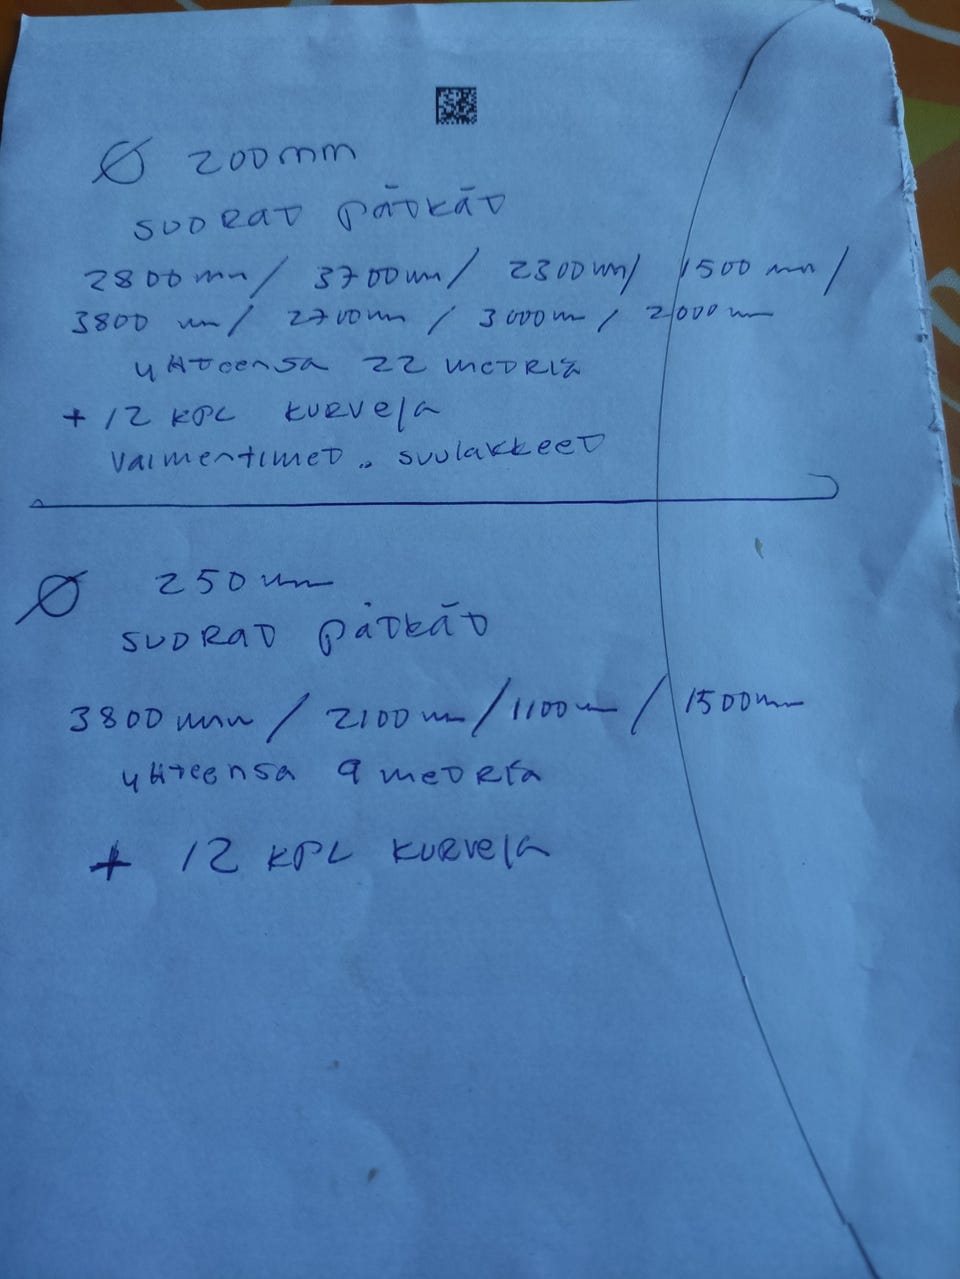 Ø 200mm
SUORAT PÄTKÄT
2800mm/ 3700mm/ 2300mm/ 1500mm/
3800 mm/ 2700mm / 3000m / 2000mm
YHTEENSA 22 METRIÄ
+ 12 KPL KURVEJA
VAIMENTIMET .. SUULAKKEET
Ø 250mm
SUORAT PÄTKÄT
3800mm / 2100mm / 1100mm / 1500mm
YHTEENSA 9 METRIÄ
+ 12 KPL KURVEJA